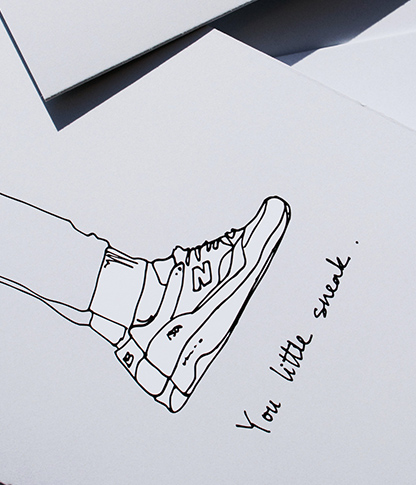 N
You little sneak.